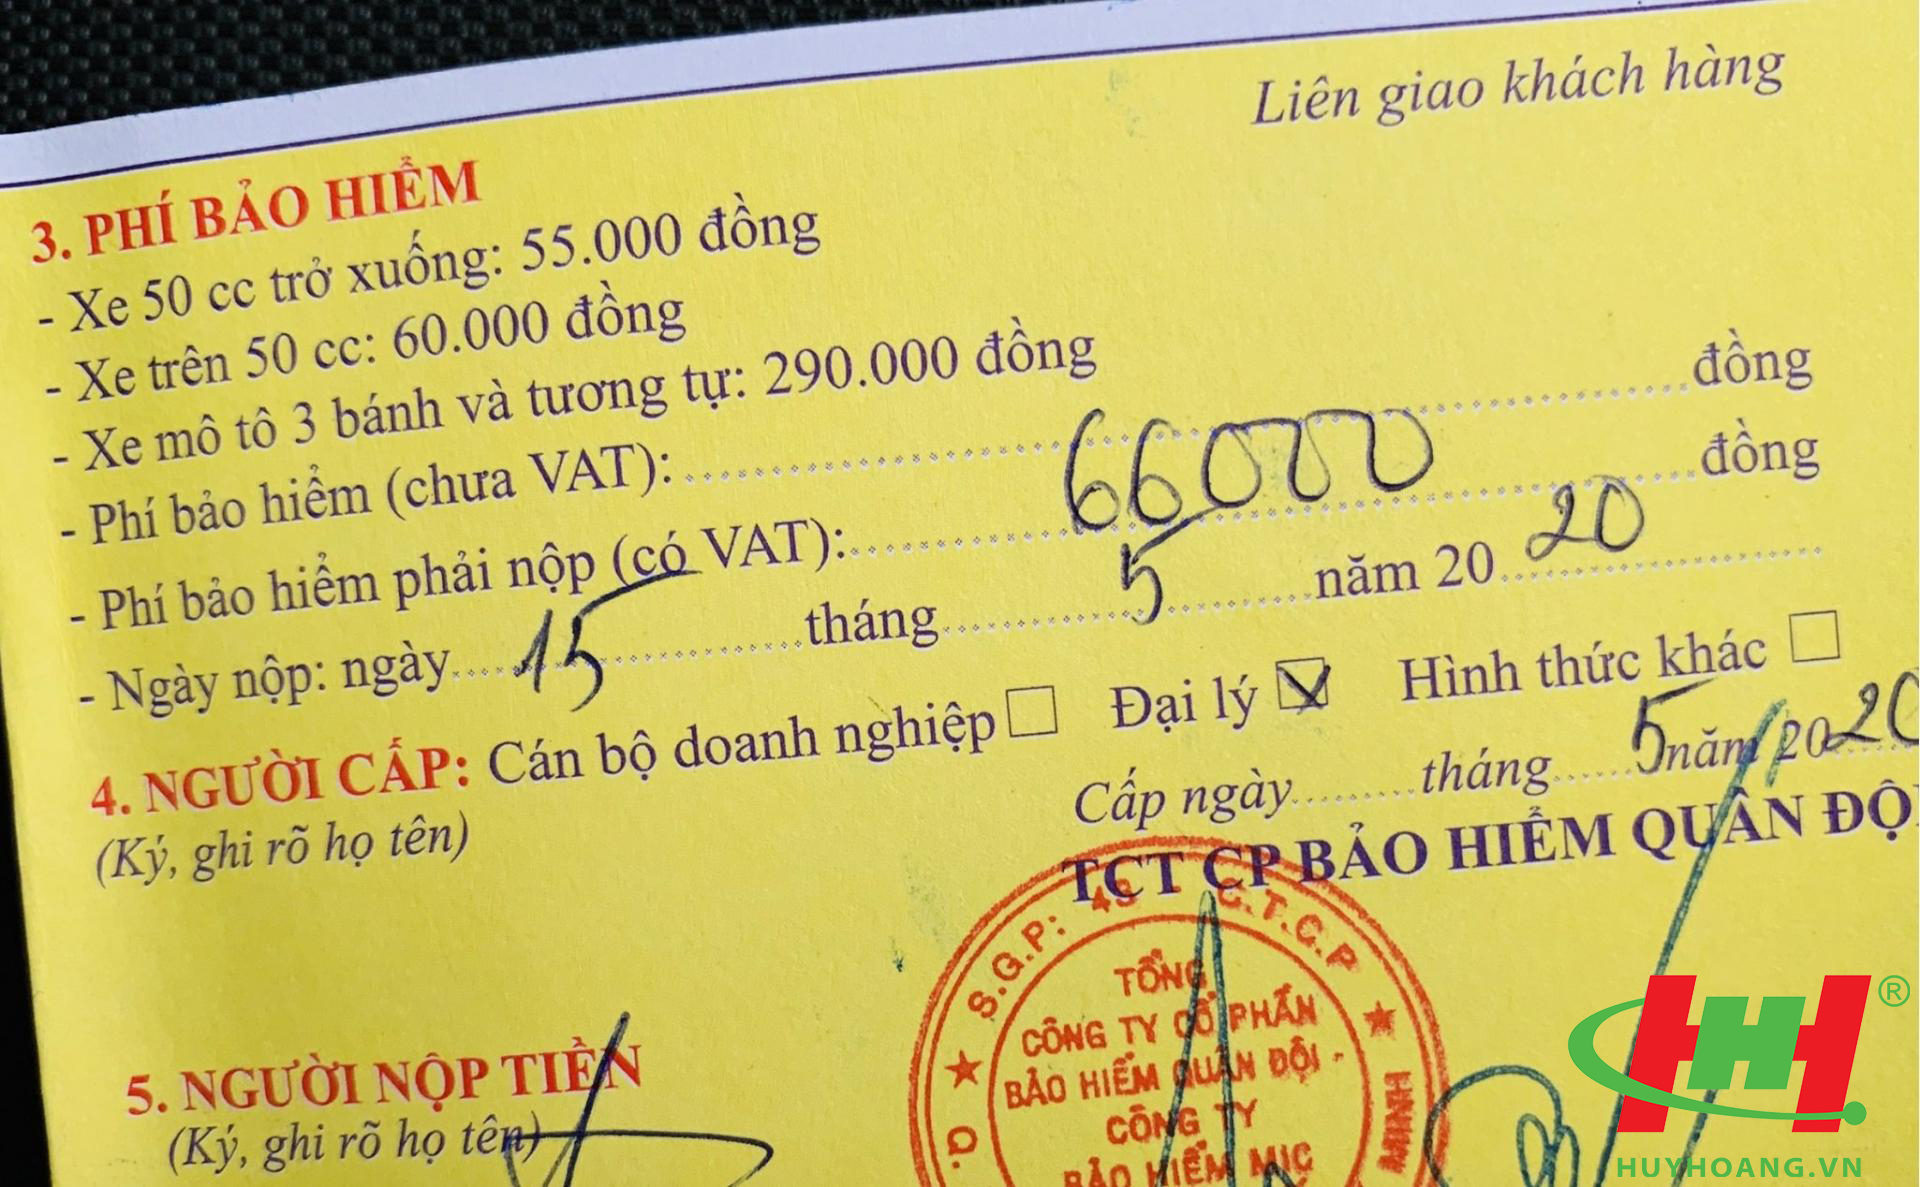 Liên giao khách hàng
3. PHÍ BẢO HIỂM
- Xe 50 cc trở xuống: 55.000 đồng
- Xe trên 50 cc: 60.000 đồng
- Xe mô tô 3 bánh và tương tự: 290.000 đồng
- Phí bảo hiểm (chưa VAT): đồng
- Phí bảo hiểm phải nộp (có VAT): 66000 đồng
- Ngày nộp: ngày 15 tháng 5 năm 2020
4. NGƯỜI CẤP: Cán bộ doanh nghiệp ☐ Đại lý ☒ Hình thức khác ☐
(Ký, ghi rõ họ tên)
Cấp ngày tháng 5 năm 2020
TCT CP BẢO HIỂM QUÂN ĐỘI
S.G.P: 43 C.T.C.P
TỔNG
CÔNG TY CỔ PHẦN
BẢO HIỂM QUÂN ĐỘI -
CÔNG TY
BẢO HIỂM MIC
Q.
MINH
5. NGƯỜI NỘP TIỀN
(Ký, ghi rõ họ tên)
HH®
HUYHOANG.VN